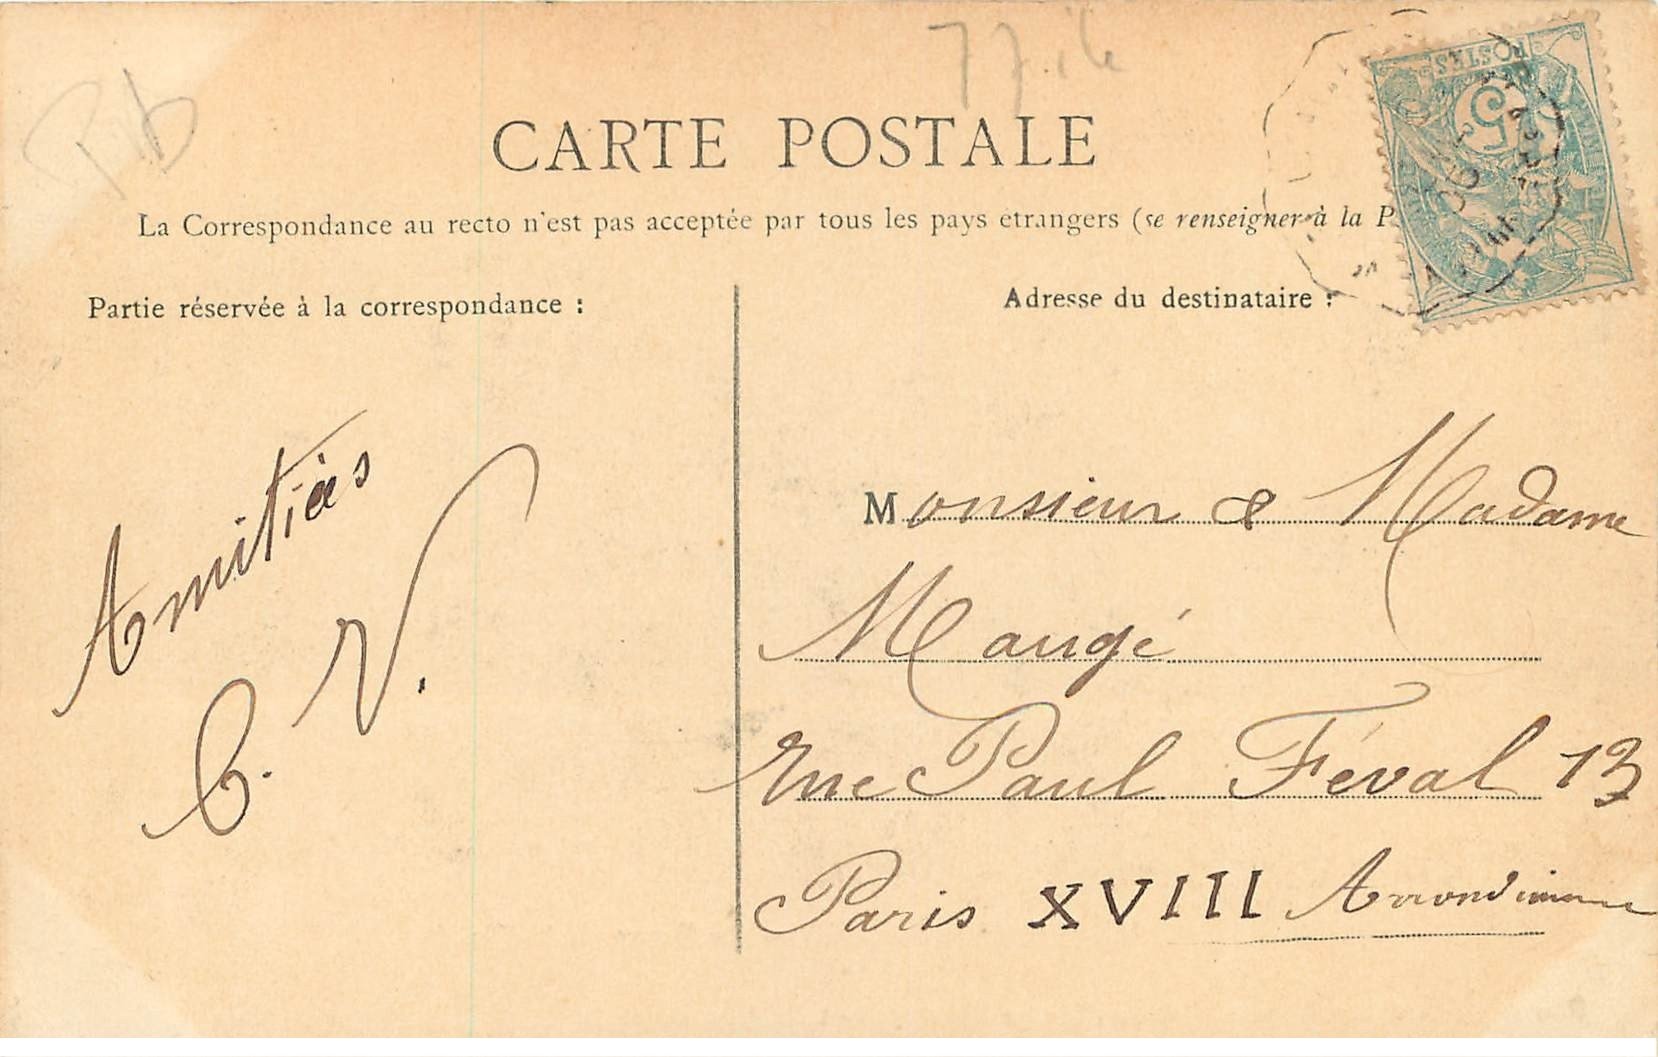 CARTE POSTALE
La Correspondance au recto n'est pas acceptée par tous les pays étrangers (se renseigner à la P
Partie réservée à la correspondance :
Adresse du destinataire :
POSTES
5
06
Amitiés
C. V.
Monsieur & Madame
Maugé
Rue Paul Féval 13
Paris XVIII Arrondissement